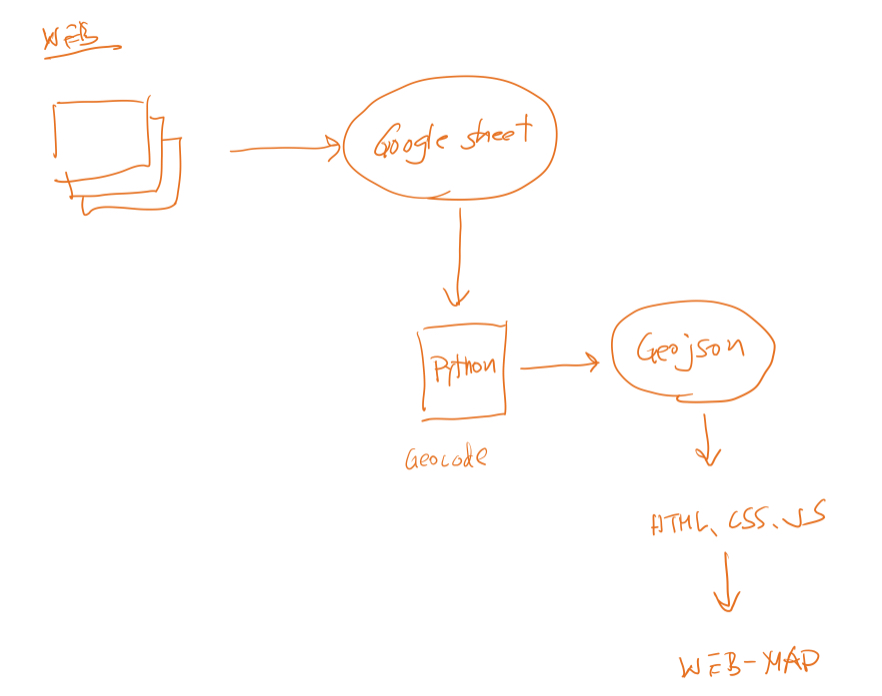 WEB
Google sheet
Python
Geojson
Geocode
HTML、CSS、JS
WEB-MAP